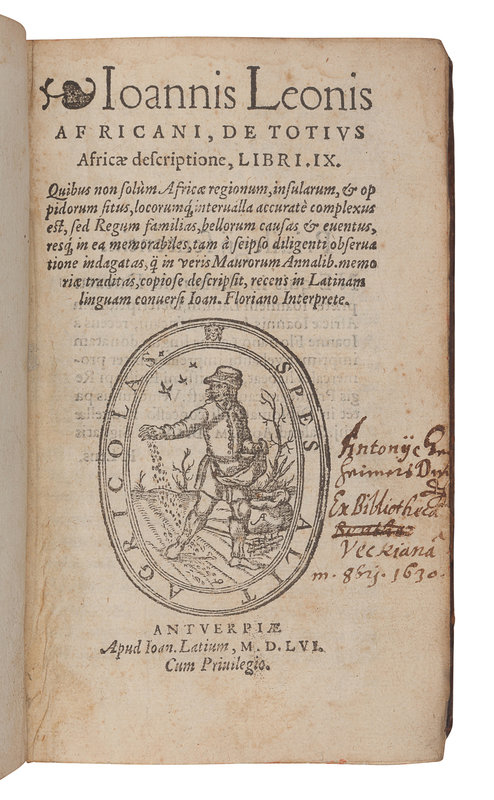 Ioannis Leonis
AFRICANI, DE TOTIVS
Africæ descriptione, LIBRI.IX.
Quibus non solùm Africæ regionum, insularum, & op
pidorum situs, locorumq́; interualla accuratè complexus
est, sed Regum familias, bellorum causas & euentus,
resq́; in ea memorabiles, tam à seipso diligenti obserua
tione indagatas, q̃ in veris Maurorum Annalib. memo
riæ traditas, copiose descripsit, recens in Latinam
linguam conuersi Ioan. Floriano Interprete.
SPES ALIT AGRICOLAS
Antonij
Ex Bibliotheca
Veckianâ
1630.
ANTVERPIÆ
Apud Ioan. Latium, M.D.LVI.
Cum Priuilegio.